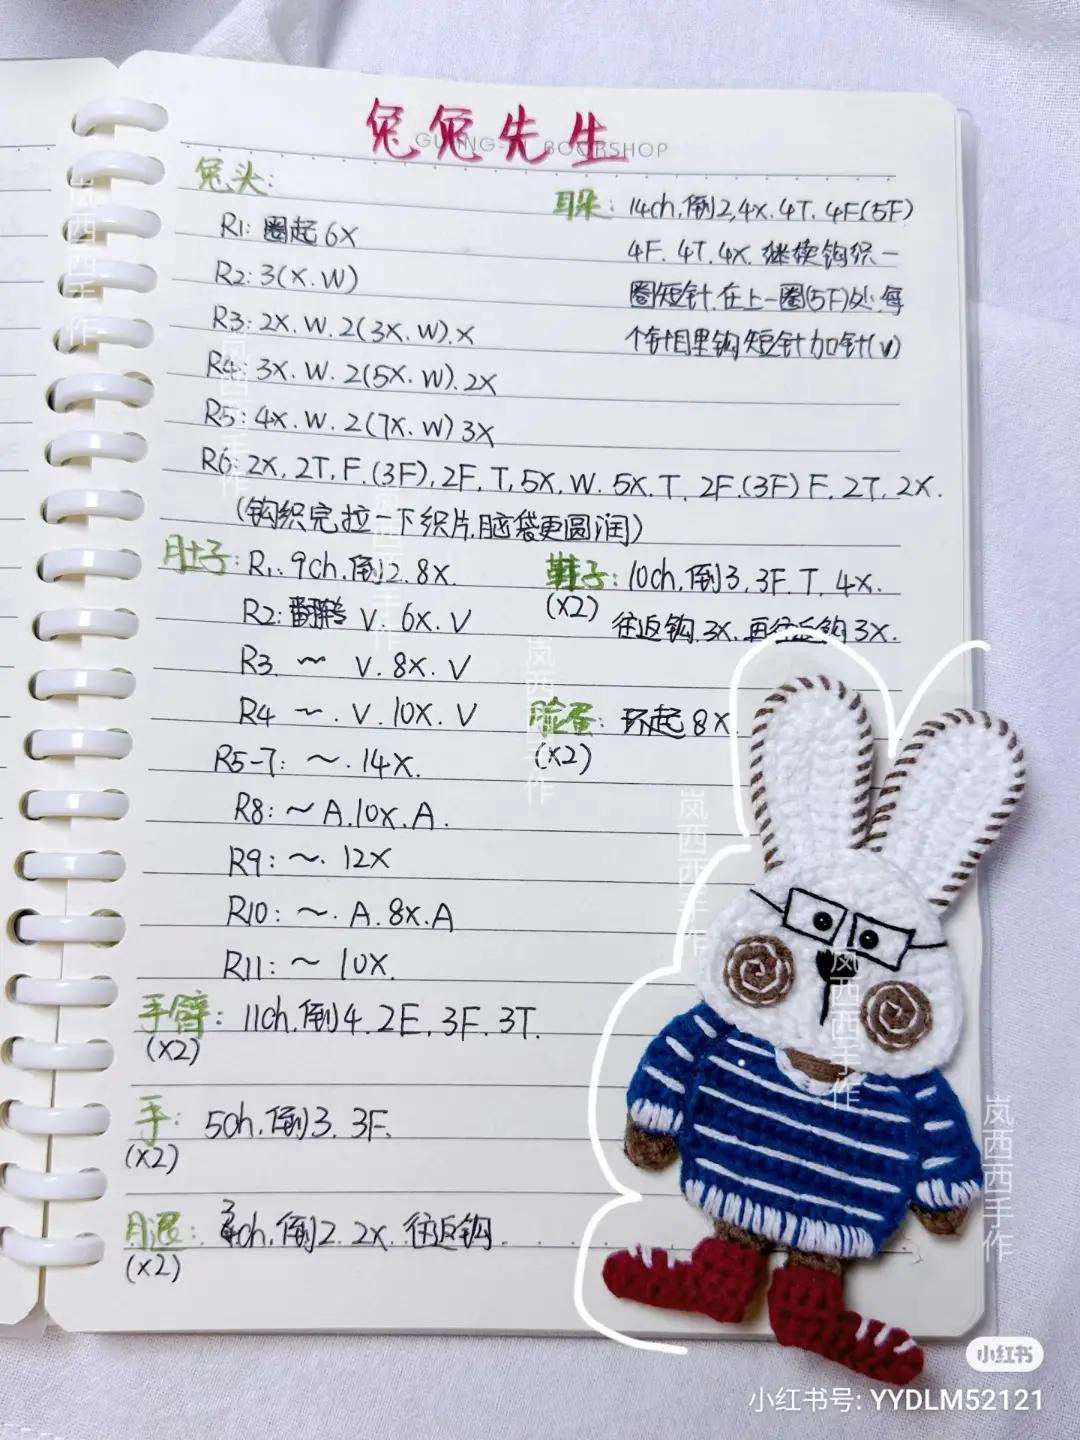 兔兔先生
GUANG BOOKSHOP
兔头:
R1: 圈起 6X
R2: 3(X.W)
R3: 2X.W.2(3X.W).X
R4: 3X.W.2(5X.W).2X
R5: 4X.W.2(7X.W)3X
R6: 2X.2T.F.(3F),2F.T,5X.W.5X.T.2F.(3F)F.2T.2X.
(钩织完拉一下织片,脑袋更圆润)
耳朵: 14ch.倒2,4X.4T.4F(5F)
4F.4T.4X.继续钩织一
圈短针.在上一圈(5F)处.每
个针目里钩短针加针(V)
肚子: R1. 9ch.倒2.8X.
R2: 翻转 V.6X.V
R3. ~ V.8X.V
R4 ~.V.10X.V
R5-7: ~.14X.
R8: ~A.10X.A.
R9: ~.12X
R10: ~.A.8X.A
R11: ~ 10X.
鞋子: 10ch.倒3.3F.T.4X.
(X2) 往返钩.3X.再往返钩3X.
脸蛋: 环起8X.
(X2)
手臂: 11ch.倒4.2E.3F.3T.
(X2)
手: 5ch.倒3.3F.
(X2)
腿: 3ch.倒2.2X.往返钩.
(X2)
岚西西手作
岚西西手作
岚西西手作
岚西西手作
岚西西手作
岚西西手作
岚西西手作
小红书
小红书号: YYDLM52121